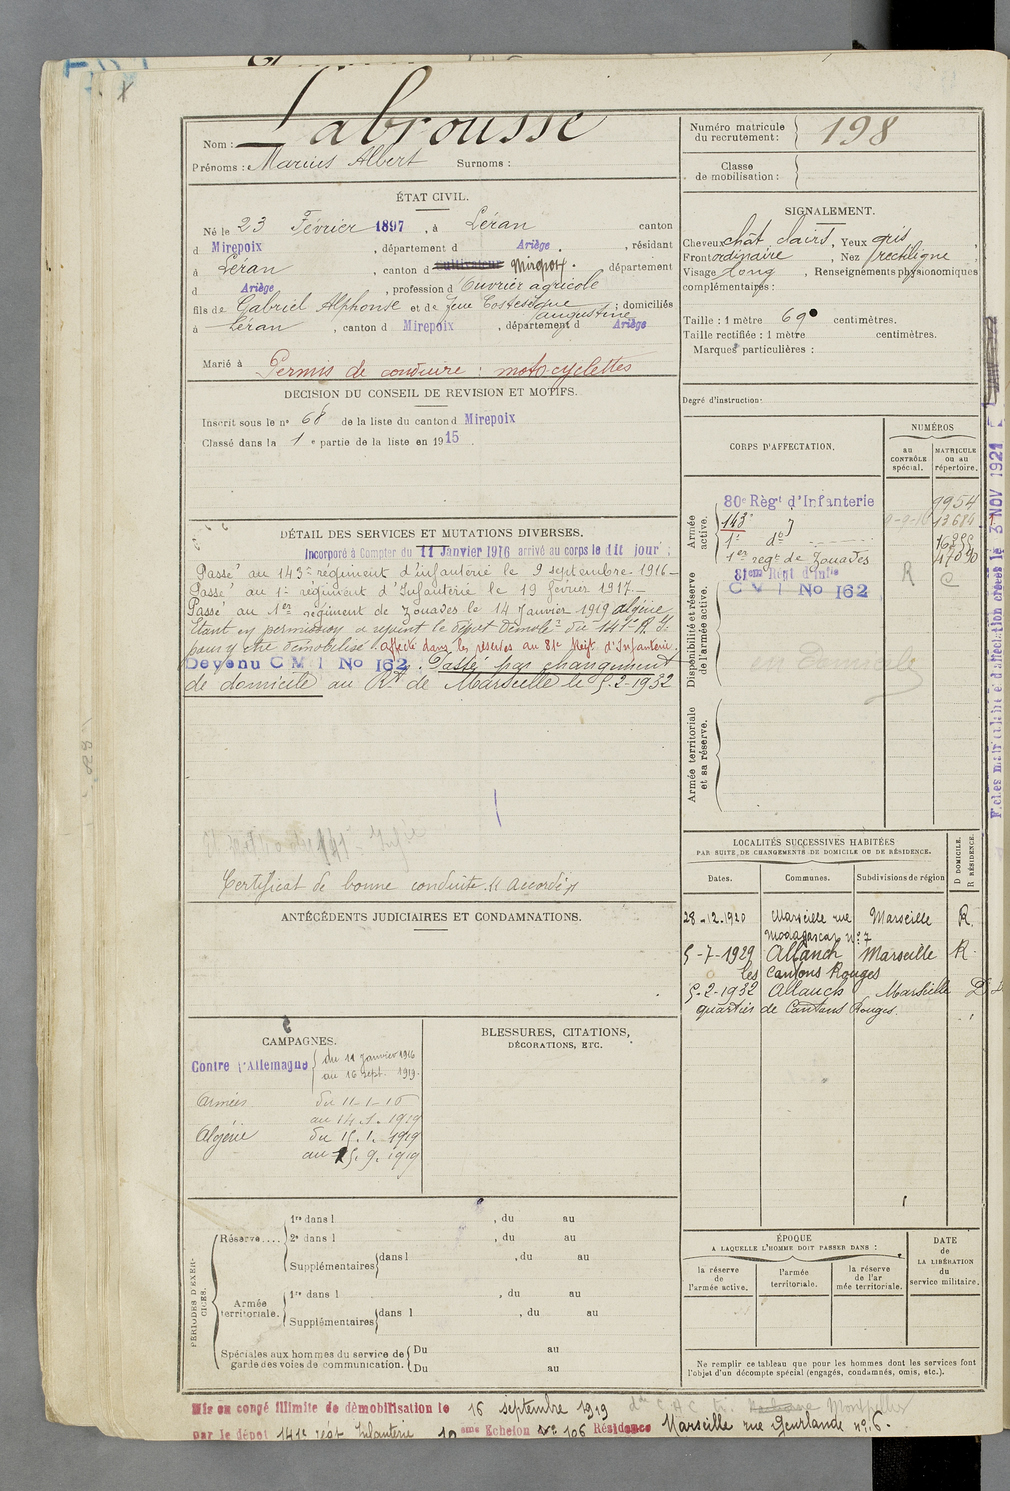 Nom : Labrousse
Prénoms : Marius Albert Surnoms :
ÉTAT CIVIL.
Né le 23 Février 1897, à Léran canton
d Mirepoix, département d Ariège, résidant
à Léran, canton d cultivateur Mirepoix, département
d Ariège, profession d Ouvrier agricole
fils de Gabriel Alphonse et de feue Costesèque ; domiciliés
augustine
à Léran, canton d Mirepoix, département d Ariège
Marié à
Permis de conduire : motocyclettes
DÉCISION DU CONSEIL DE REVISION ET MOTIFS.
Inscrit sous le n° 68 de la liste du canton d Mirepoix
Classé dans la 1e partie de la liste en 1915
DÉTAIL DES SERVICES ET MUTATIONS DIVERSES.
Incorporé à Compter du 11 Janvier 1916 arrivé au corps le dit jour ;
Passé au 143e régiment d'infanterie le 9 septembre 1916
Passé au 1er régiment d'Infanterie le 19 février 1917
Passé au 1er régiment de Zouaves le 14 Janvier 1919 algérie
Étant en permission a rejoint le dépôt démobr du 141e R. I.
pour y être démobilisé. affecté dans les réserves au 81e Régt d'Infanterie.
Devenu C M I No 162. Passé par changement
de domicile au Rt de Marseille le 5-2-1932
Certificat de bonne conduite "accordé"
ANTÉCÉDENTS JUDICIAIRES ET CONDAMNATIONS.
CAMPAGNES.
Contre l'Allemagne du 11 Janvier 1916
au 16 Sept. 1919.
Armées du 11-1-16
au 14.1.1919
Algérie du 15.1.1919
au 15.9.1919
BLESSURES, CITATIONS,
DÉCORATIONS, ETC.
PÉRIODES D'EXERCICES.
Réserve.... 1re dans l , du au
2e dans l , du au
Supplémentaires dans l , du au
Armée territoriale. 1re dans l , du au
Supplémentaires dans l , du au
Spéciales aux hommes du service de Du au
garde des voies de communication. Du au
Numéro matricule
du recrutement : 198
Classe
de mobilisation :
SIGNALEMENT.
Cheveux chât. clairs, Yeux gris,
Front ordinaire, Nez rectiligne
Visage long, Renseignements physionomiques
complémentaires :
Taille : 1 mètre 69 centimètres.
Taille rectifiée : 1 mètre centimètres.
Marques particulières :
Degré d'instruction :
CORPS D'AFFECTATION.
NUMÉROS
au
CONTRÔLE
spécial.
MATRICULE
ou au
répertoire.
Armée active.
80e Régt d'Infanterie 9954
143e 13684
1er do
1er regt de Zouaves
Disponibilité et réserve de l'armée active.
81eme Régt d'Infie
C M I No 162
R C
Armée territoriale et sa réserve.
LOCALITÉS SUCCESSIVES HABITÉES
PAR SUITE DE CHANGEMENTS DE DOMICILE OU DE RÉSIDENCE.
D DOMICILE.
R RÉSIDENCE.
Dates. Communes. Subdivisions de région
28-12-1920 Marseille rue Marseille R.
Madagascar n°7
5-7-1929 Allauch Marseille R.
les Cantons Rouges
5-2-1932 Allauch Marseille D
quartier de Cantons Rouges.
ÉPOQUE
A LAQUELLE L'HOMME DOIT PASSER DANS :
la réserve
de
l'armée active.
l'armée
territoriale.
la réserve
de l'armée territoriale.
DATE
de
LA LIBÉRATION
du
service militaire.
Ne remplir ce tableau que pour les hommes dont les services font
l'objet d'un décompte spécial (engagés, condamnés, omis, etc.).
Fiches matricule et d'affectation créées le 3 NOV 1921
Mis en congé illimité de démobilisation le 16 septembre 1919
par le dépôt 141e régt Infanterie 10 ème Echelon n° 106 Résidence Marseille rue